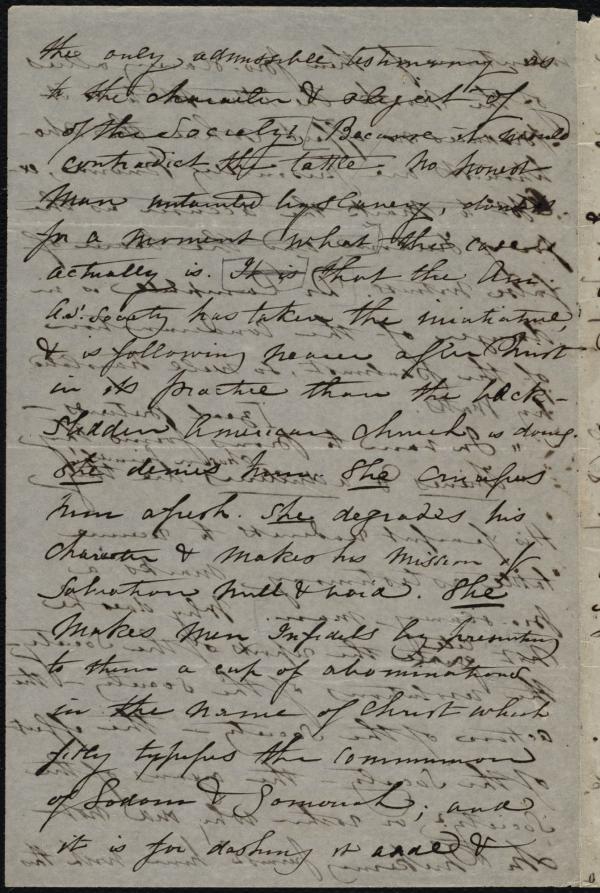 the only admissible testimony as
to the character & object of
of the Society! Because it would
contradict the tattle. No honest
man untainted by slavery, doubts
for a moment what the case
actually is. It is that the Am.
A.S. Society has taken the initiative,
& is following nearer after Christ
in its practice than the back-
slidden American Church is doing.
She denies him. She crucifies
him afresh. She degrades his
character & makes his mission of
Salvation null & void. She
makes men Infidels by presenting
to them a cup of abominations
in the name of Christ which
fitly typifies the communion
of Sodom & Gomorah; and
it is for dashing it &